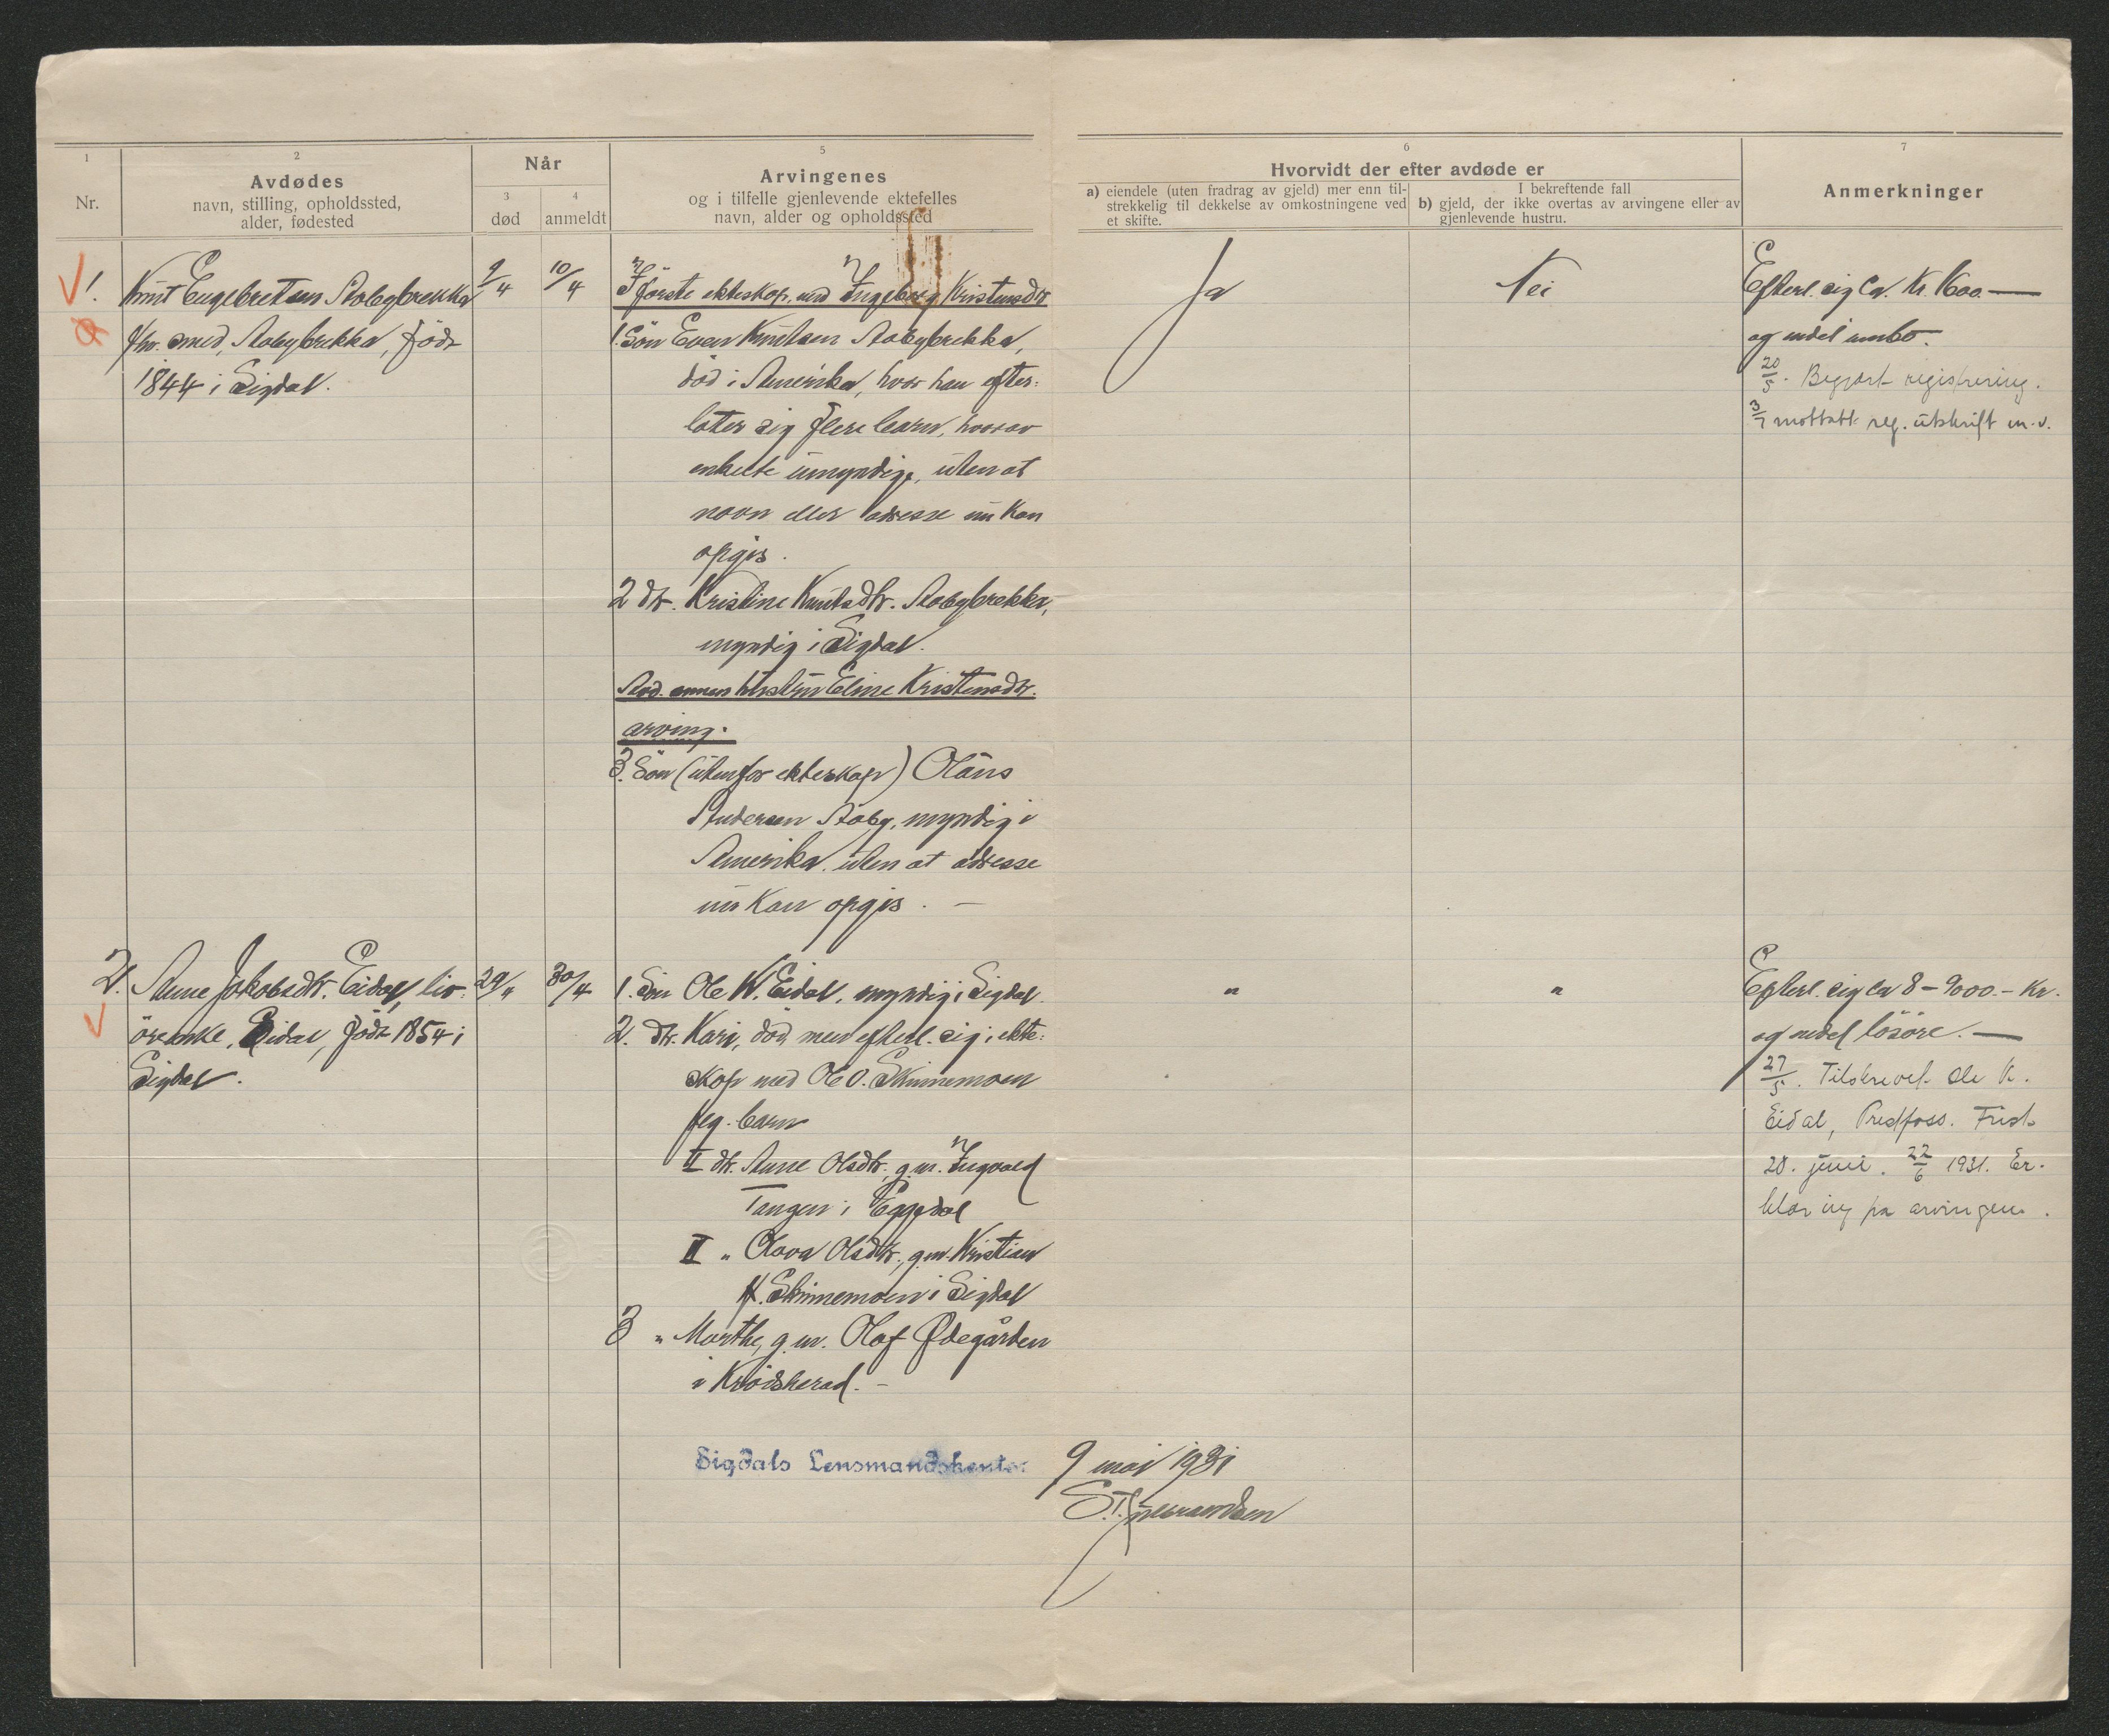 1
Nr.
2
Avdødes
navn, stilling, opholdssted,
alder, fødested
Når
3
død
4
anmeldt
5
Arvingenes
og i tilfelle gjenlevende ektefelles
navn, alder og opholdssted
6
Hvorvidt der efter avdøde er
a) eiendele (uten fradrag av gjeld) mer enn til-
strekkelig til dekkelse av omkostningene ved
et skifte.
I bekreftende fall
b) gjeld, der ikke overtas av arvingene eller av
gjenlevende hustru.
7
Anmerkninger
1.
Knut Engebretsen Aabybrekka
fhv. smed, Aabybrekka, født
1844 i Sigdal.
9/4
10/4
I første ekteskap med Ingeborg Kristensdtr
1. Søn Even Knutsen Aabybrekka,
død i Amerika, hvor han efter-
later sig flere barn, hvorav
enkelte umyndige, uten at
navn eller adresse nu kan
opgis.
2 dtr. Kristine Knutsdtr. Aabybrekka,
myndig i Sigdal.
annen hustru Eline Kristensdtr.
arving.
3. Søn (utenfor ekteskap) Olaus
Andersen Aaby, myndig i
Amerika uten at adresse
nu kan opgis. —
Ja
Nei
Efterl. sig ca. Kr. 1600.—
og endel innbo.
20/5. Begjært registrering.
3/7 mottatt reg. utskrift m.v.
2.
Anne Jakobsdtr. Eidal, liv-
øreenke, Eidal, født 1854 i
Sigdal.
29/"
30/4
1. Søn Ole K. Eidal, myndig i Sigdal.
2. dtr. Kari, død men efterl. sig i ekte-
skap med Ole O. Skinnemoen
flg. barn
I dtr. Anne Olsdtr. g.m. Ingvald
Tangen i Eggedal
II " Olava Olsdtr., g.m. Kristian
K. Skinnemoen i Sigdal
3 " Marthe, g.m. Olaf Ødegården
i Krødsherad. —
"
"
Efterl. sig ca 8-9000.- Kr.
og endel løsøre. —
27/5. Tilskrevet Ole K.
Eidal, Prestfoss. Frist
20. juni. 22/6 1931. Er-
klæring fra arvingene.
Sigdals Lensmandskontor
9 mai 1931